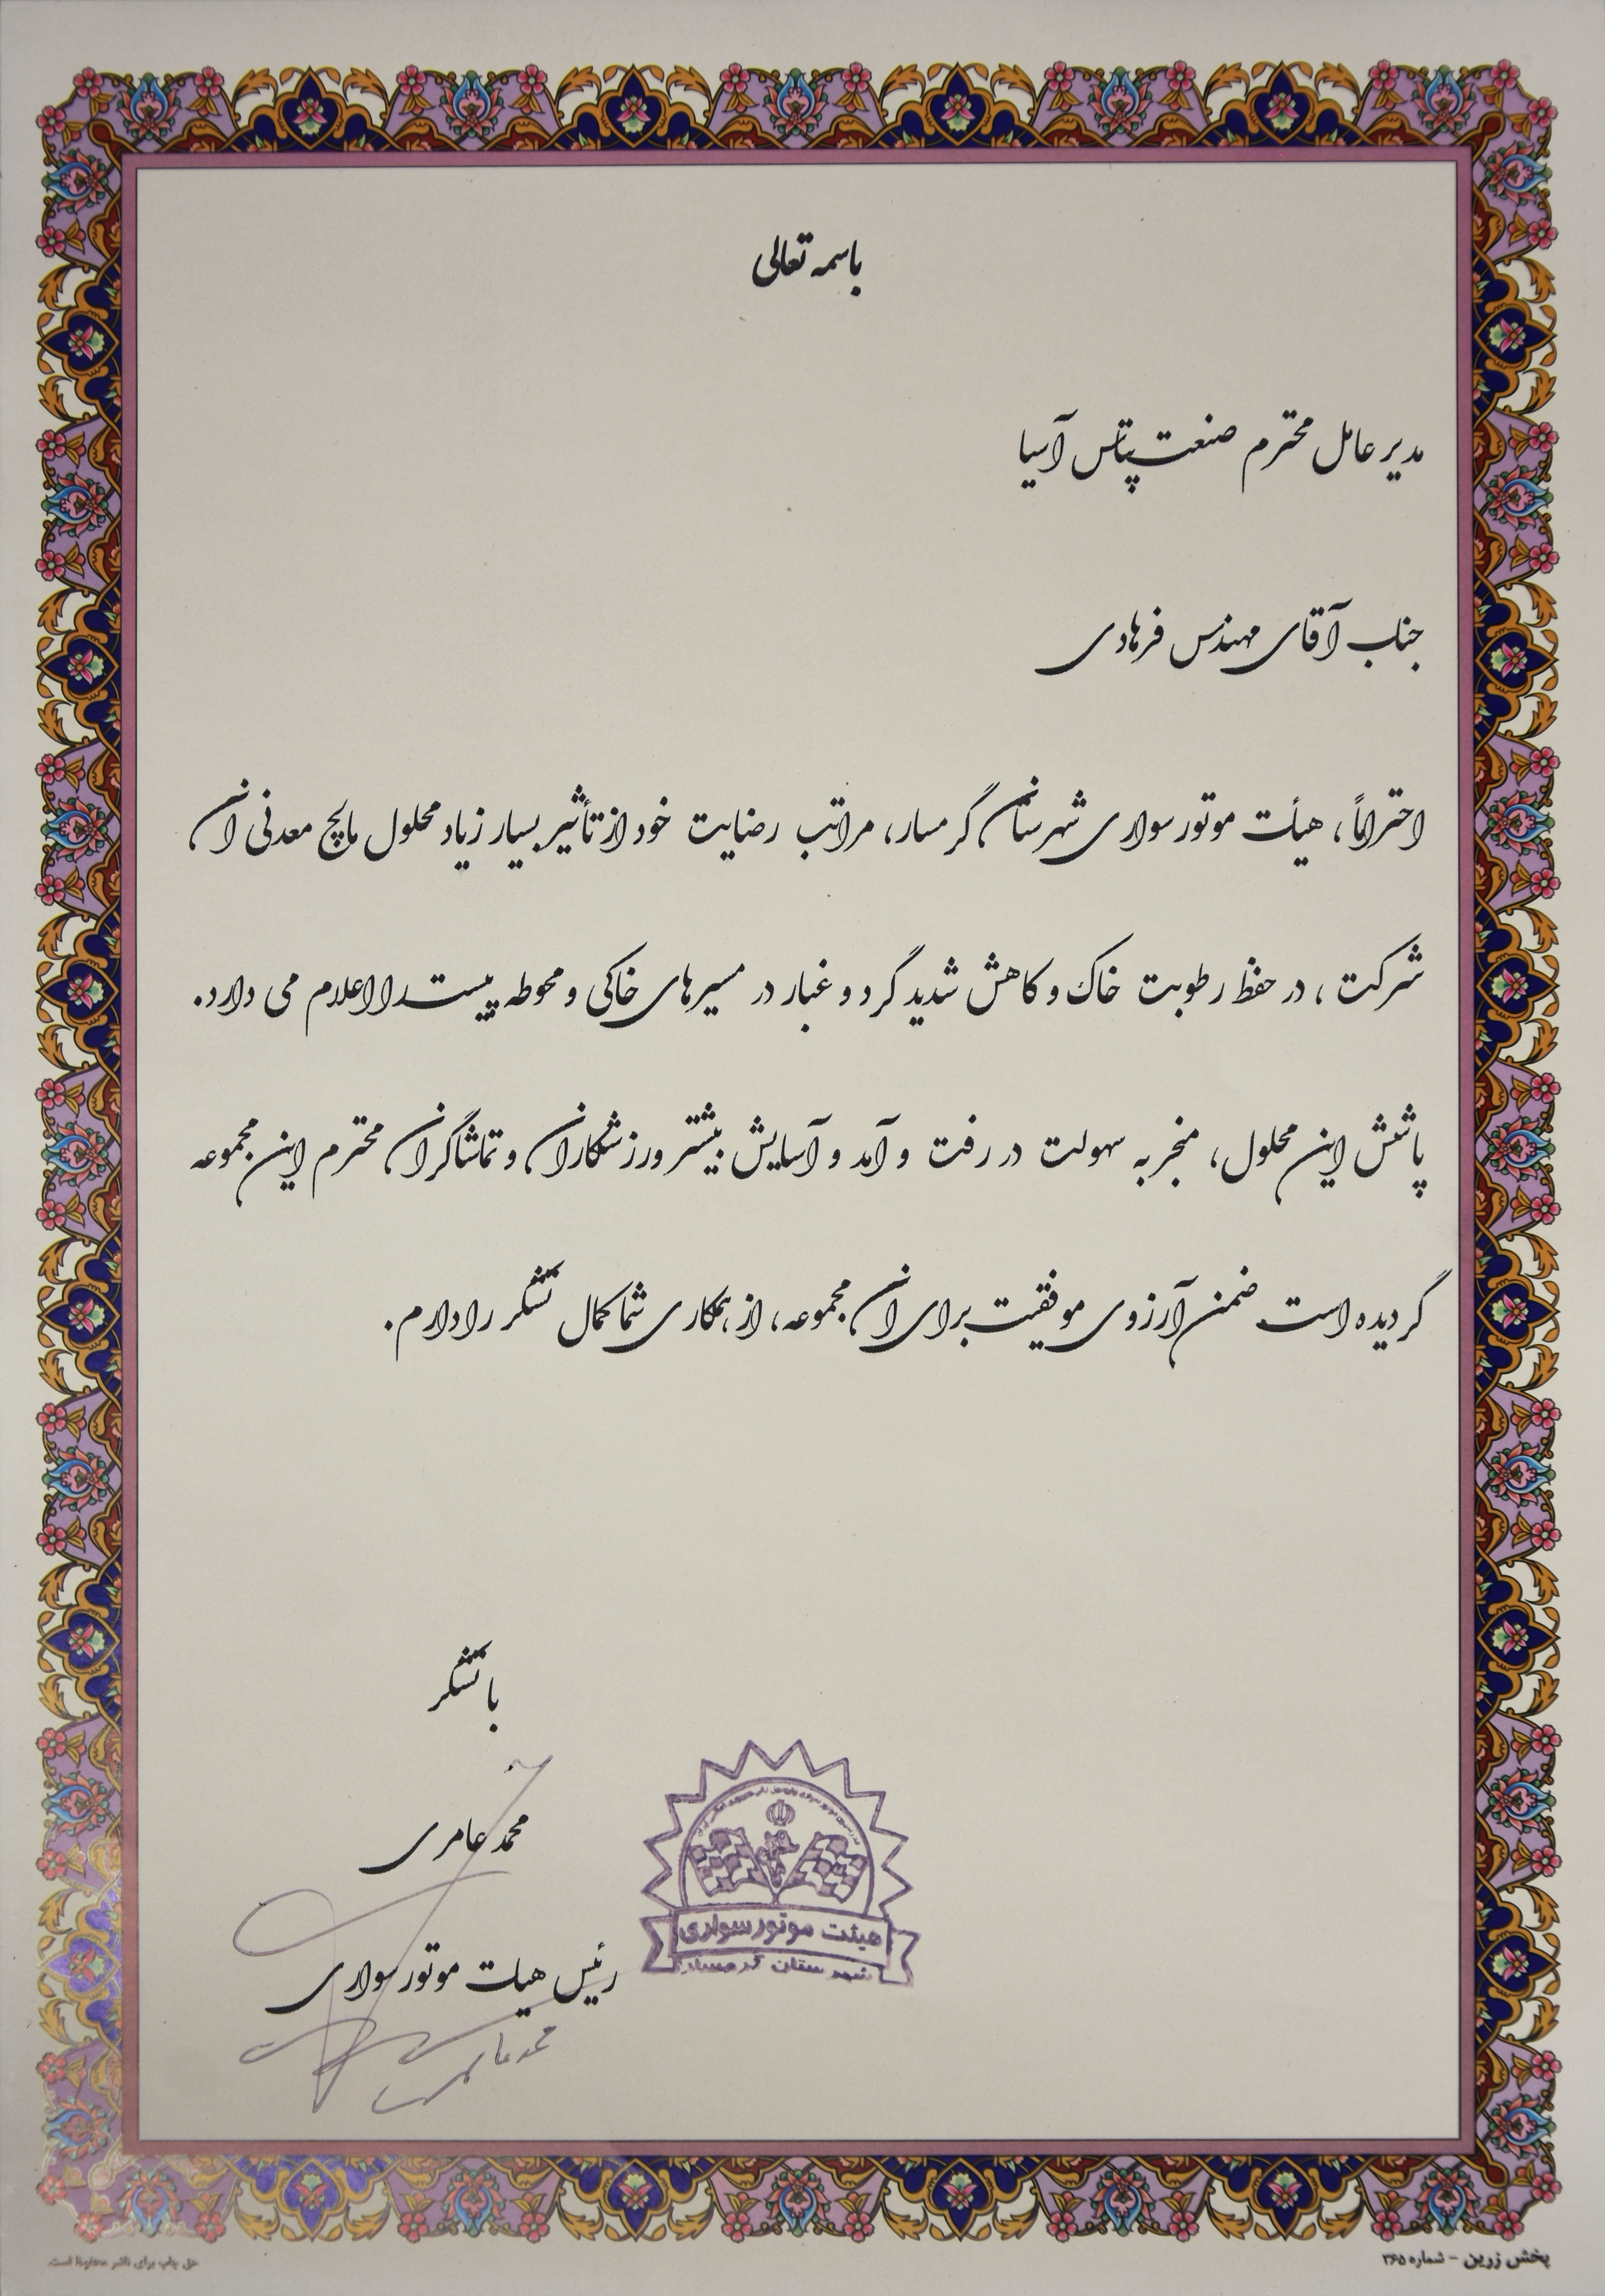 باسمه تعالی
مدیر عامل محترم صنعت پتاس آسیا
جناب آقای مهندس فرهادی
احتراماً، هیأت موتورسواری شهرستان گرمسار، مراتب رضایت خود از تأثیر بسیار زیاد محلول مالچ معدنی آن
شرکت، در حفظ رطوبت خاک و کاهش شدید گرد و غبار در مسیرهای خاکی و محوطه پیست را اعلام می دارد.
پاشش این محلول، منجر به سهولت در رفت و آمد و آسایش بیشتر ورزشکاران و تماشاگران محترم این مجموعه
گردیده است ضمن آرزوی موفقیت برای آن مجموعه، از همکاری شما کمال تشکر را دارم.
با تشکر
محمد عامری
رئیس هیات موتورسواری
محمد عامری
هیئت موتورسواری
شهرستان گرمسار
پخش زرین - شماره ۳۶۵
حق چاپ برای ناشر محفوظ است.